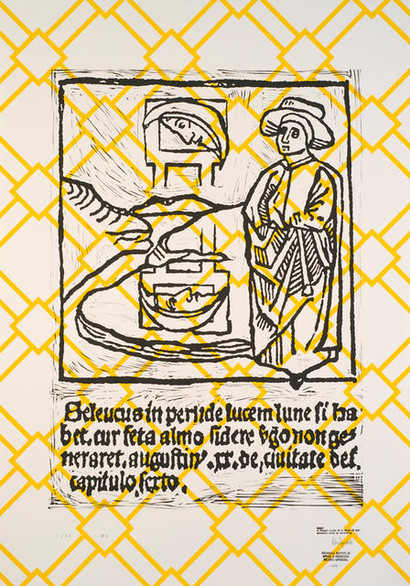 Seleucus in perside lucem lune si ha
bet. cur feta almo sidere v̄go non ge=
neraret. augustinꝰ .xx. de, ciuitate dei.
capitulo, sexto.